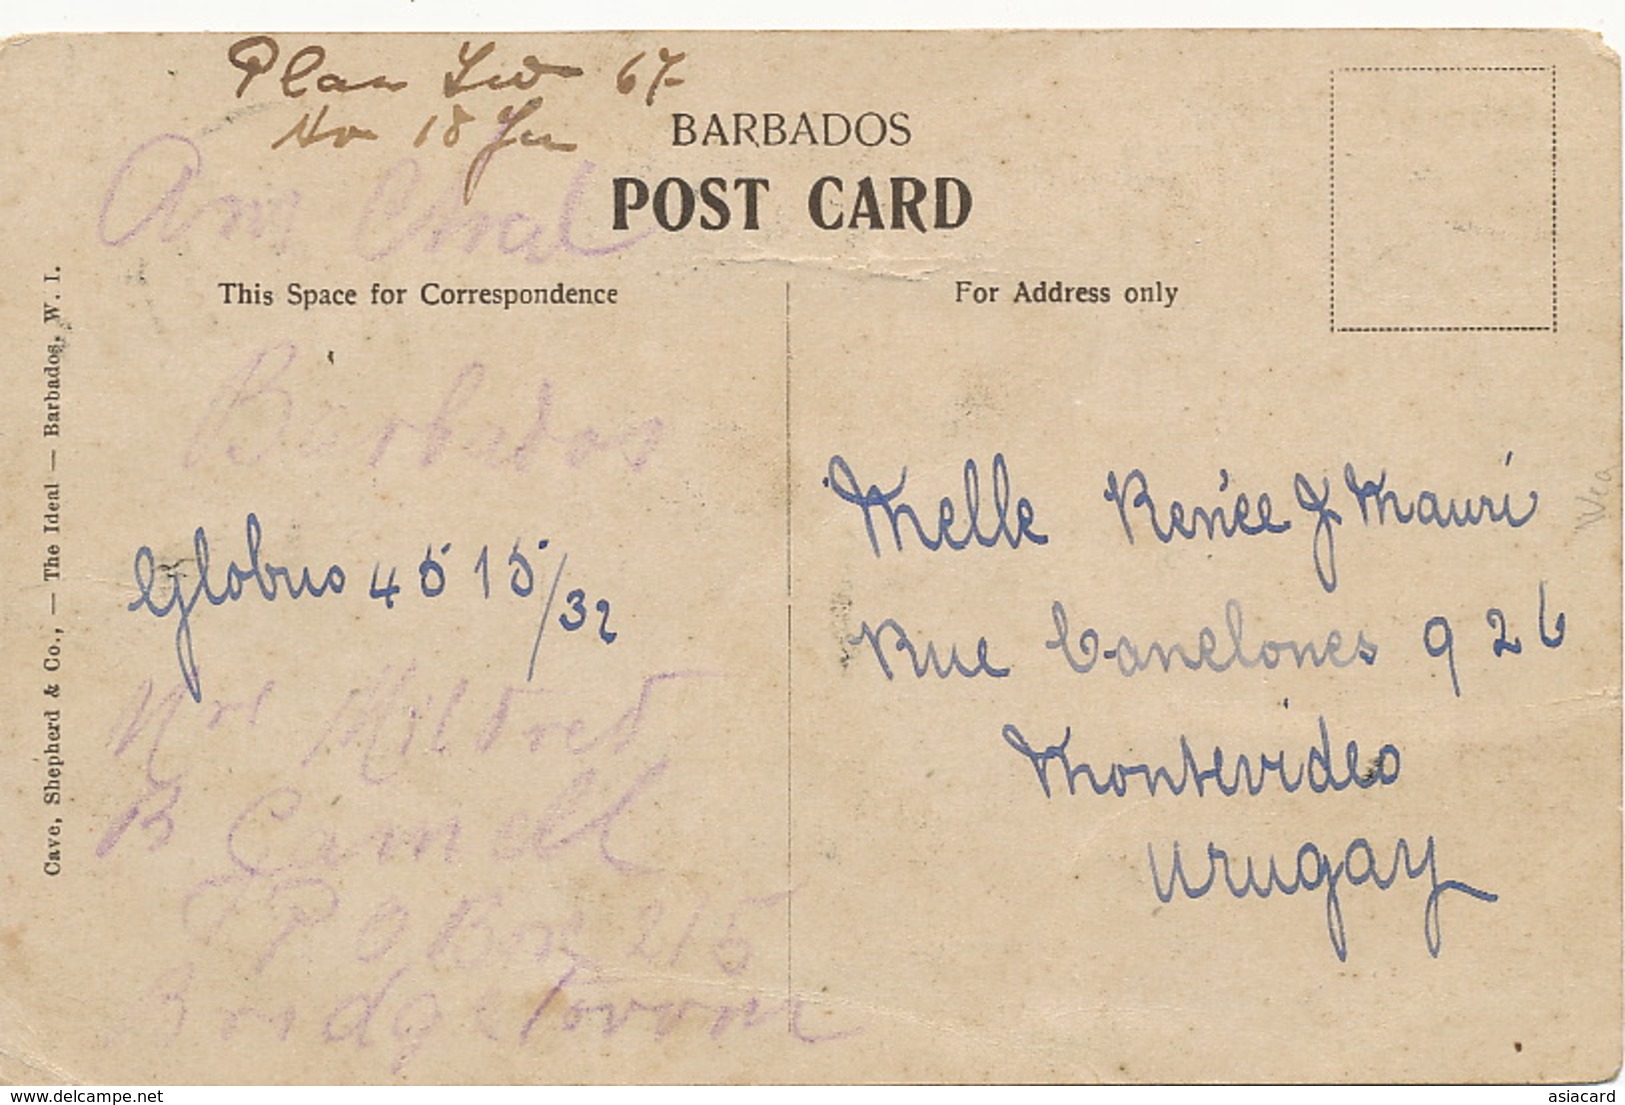 Plan
67
18
BARBADOS
POST CARD
This Space for Correspondence
For Address only
Barbados
Globus 4515/32
Mildred
B
P O Box 215
Bridgetown
Melle Renée J. Mauri
Rue Canelones 926
Montevideo
Urugay
Cave, Shepherd & Co., — The Ideal — Barbados, W. I.
www.delcampe.net
asiacard